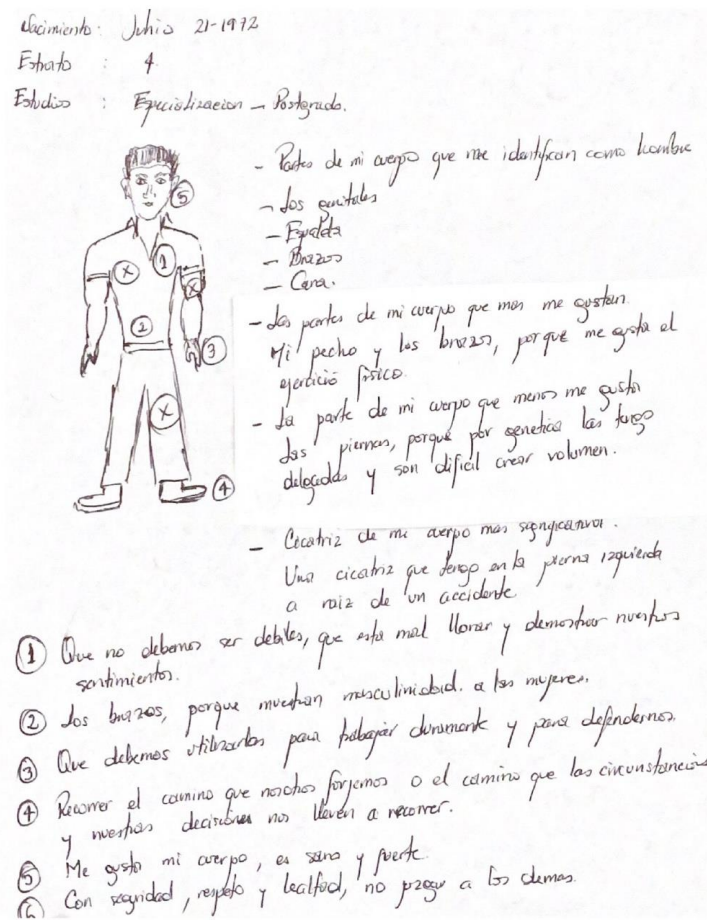 Nacimiento: Junio 21-1972
Estrato : 4
Estudios : Especializacion – Postgrado.
- Partes de mi cuerpo que me identifican como hombre
- Los genitales
- Espalda
- Brazos
- Cara.
- Las partes de mi cuerpo que mas me gustan.
Mi pecho y los brazos, porque me gusta el
ejercicio fisico
- La parte de mi cuerpo que menos me gusta
Las piernas, porque por genetica las tengo
delgadas y son dificil crear volumen.
- Cicatriz de mi cuerpo mas significativa.
Una cicatriz que tengo en la pierna izquierda
a raiz de un accidente
5
X
1
X
2
3
X
4
1 Que no debemos ser debiles, que esta mal llorar y demostrar nuestros
sentimientos.
2 Los brazos, porque muestran masculinidad. a las mujeres.
3 Que debemos utilizarlos para trabajar duramente y para defendernos.
4 Recorrer el camino que nosotros forjemos o el camino que las circunstancias
y nuestras decisiones nos lleven a recorrer.
5 Me gusta mi cuerpo, es sano y fuerte
6 Con seguridad, respeto y lealtad, no a los demas.